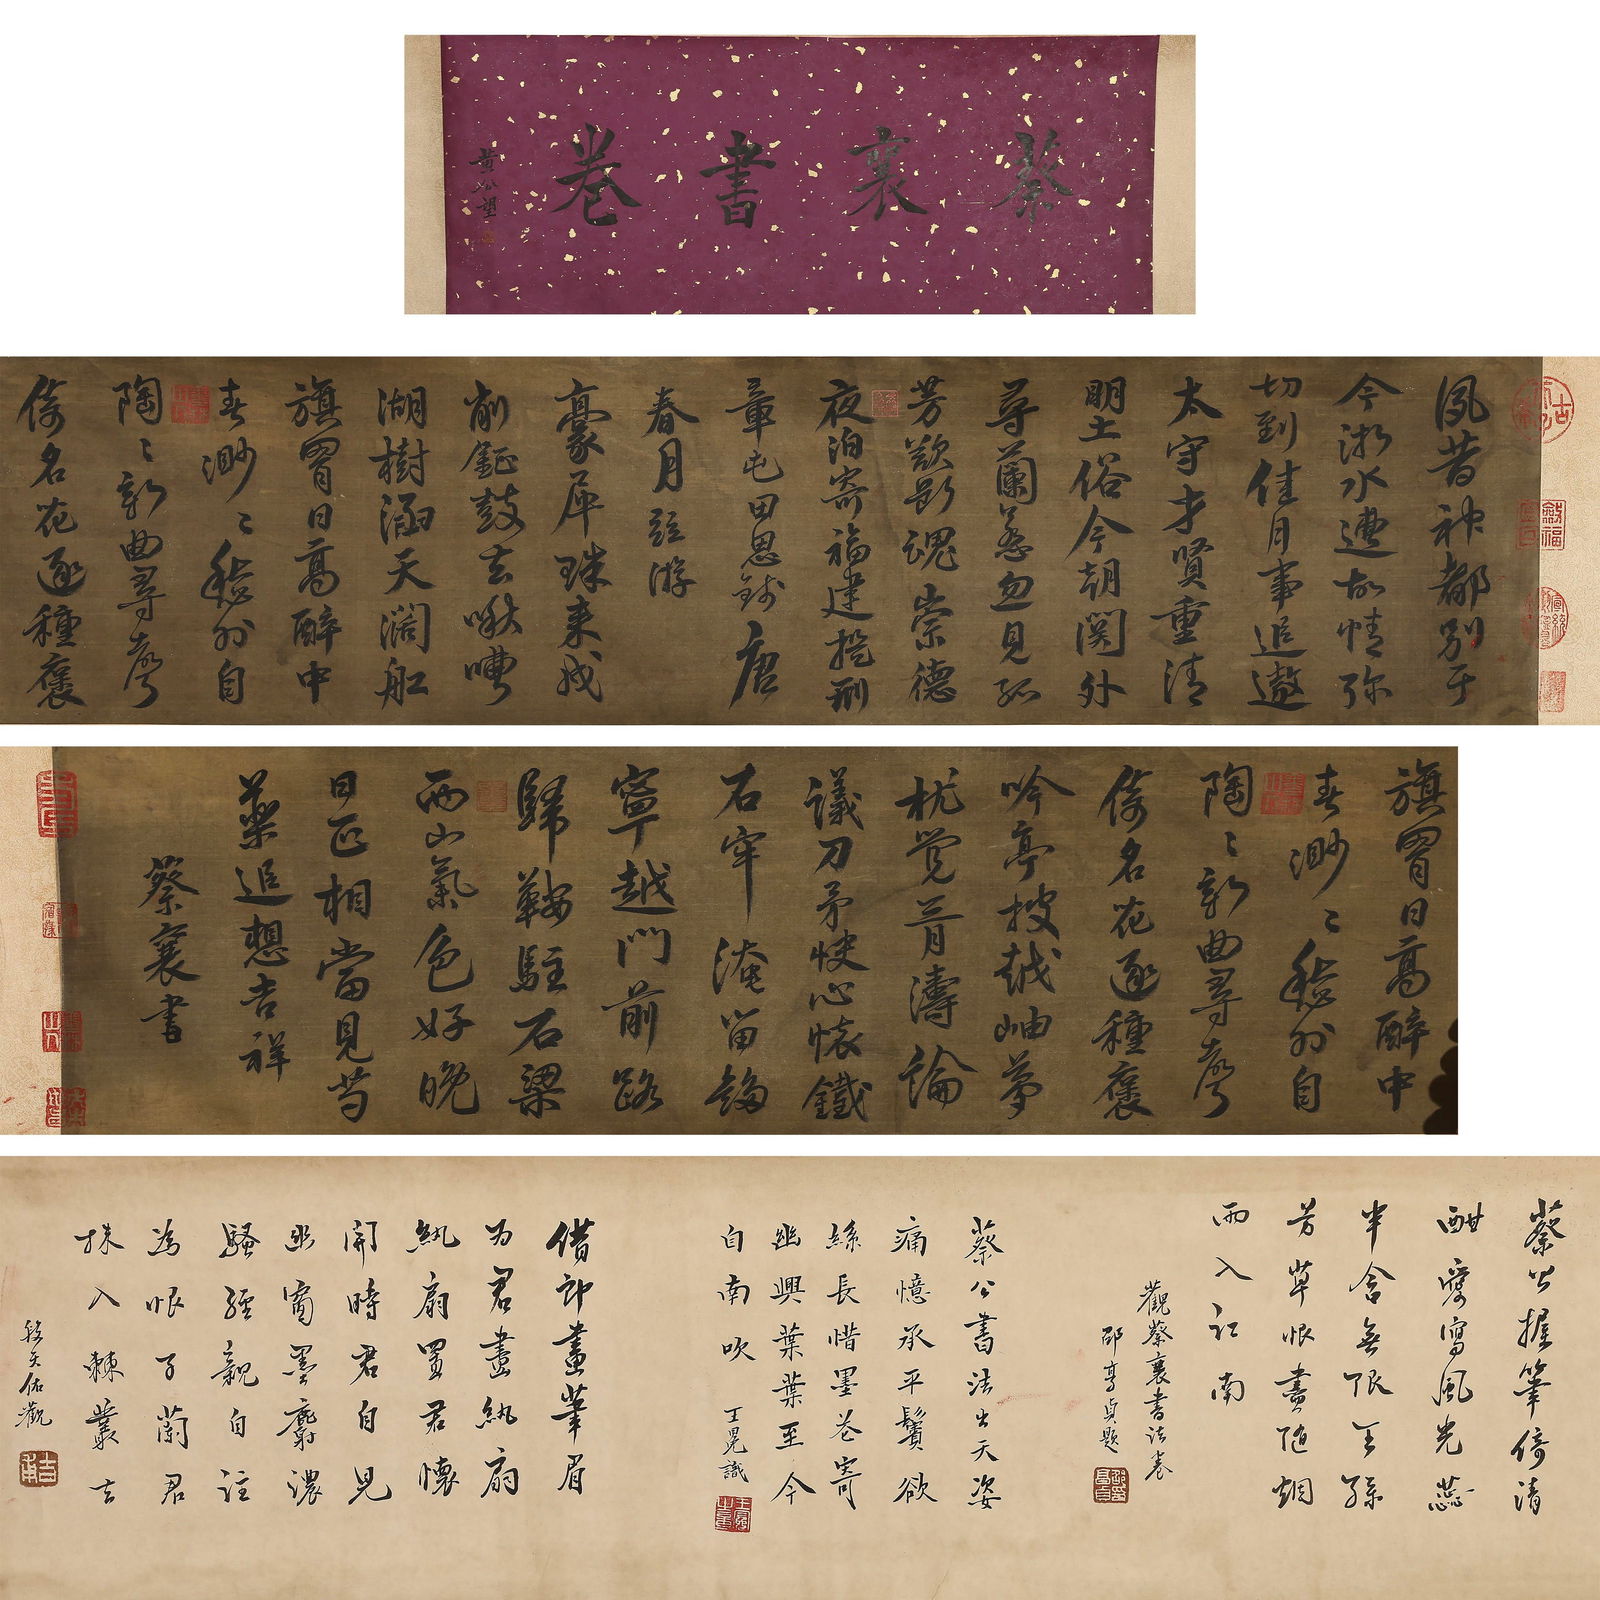 蔡襄書卷
黃公望
夙昔神都別于
今浙水遭故情弥
切到佳月事追遨
太守才賢重清
明土俗今朝関外
尋蘭蕙忽見孤
芳歎斷魂 崇德
夜泊寄福建提刑
章屯田思錢唐
春月並游
豪犀珠来戎
削鉦鼓去啾嘈
湖樹涵天闊舡
旗冐日髙醉中
春渺〻愁外自
陶〻新曲尋聲
倚名花逐種褒
旗冐日髙醉中
春渺〻愁外自
陶〻新曲尋聲
倚名花逐種褒
吟亭披越岫夢
枕覺胥濤論
議刀矛快心懷鐵
石牢淹留趨
寧越門前路
歸鞍駐石梁
西山氣色好晚
日正相當見芍
藥追想吉祥
蔡襄書
蔡公握筆倚清
酣愛寫風光蕊
半含無限王孫
芳草恨盡隨烟
雨入江南
觀蔡襄書法卷
邵亨貞題
蔡公書法出天姿
痛憶承平鬢欲
絲長惜墨卷寄
幽興葉葉至今
自南吹
王冕識
借卻畫筆眉
为君畫紈扇
紈扇置君懷
開時君自見
幽窗墨麝濃
騷經親自註
為恨子蘭君
抹入棘叢去
段天佑觀